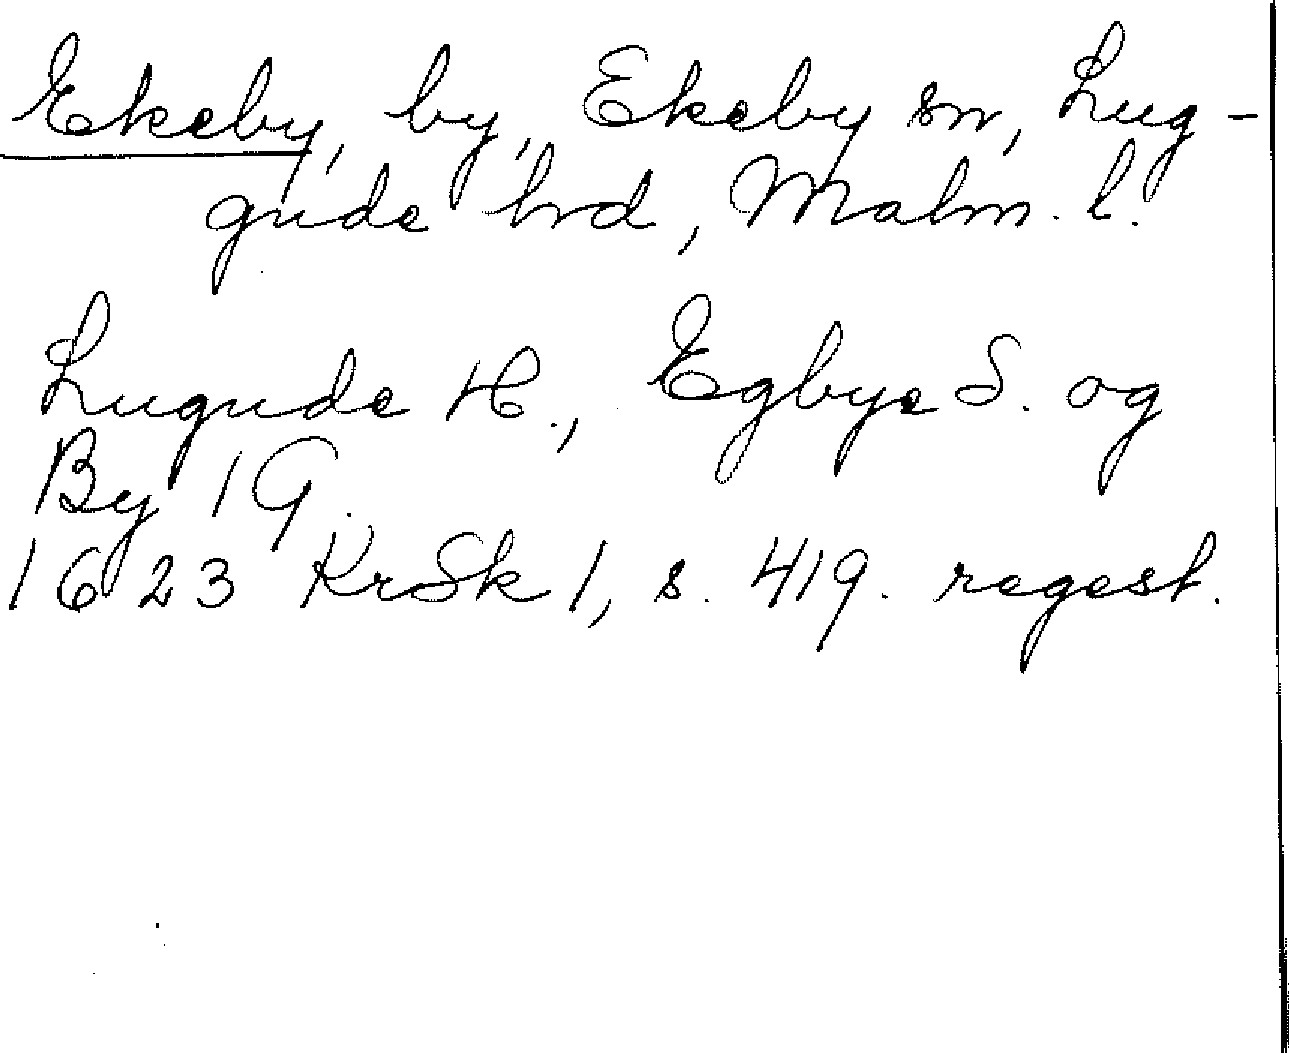 Ekeby, by, Ekeby sn, Lug-
gude hrd, Malm. l.
Lugude H., Egbye S. og
By 1 G.
1623 KrSk 1, s. 419. regest.